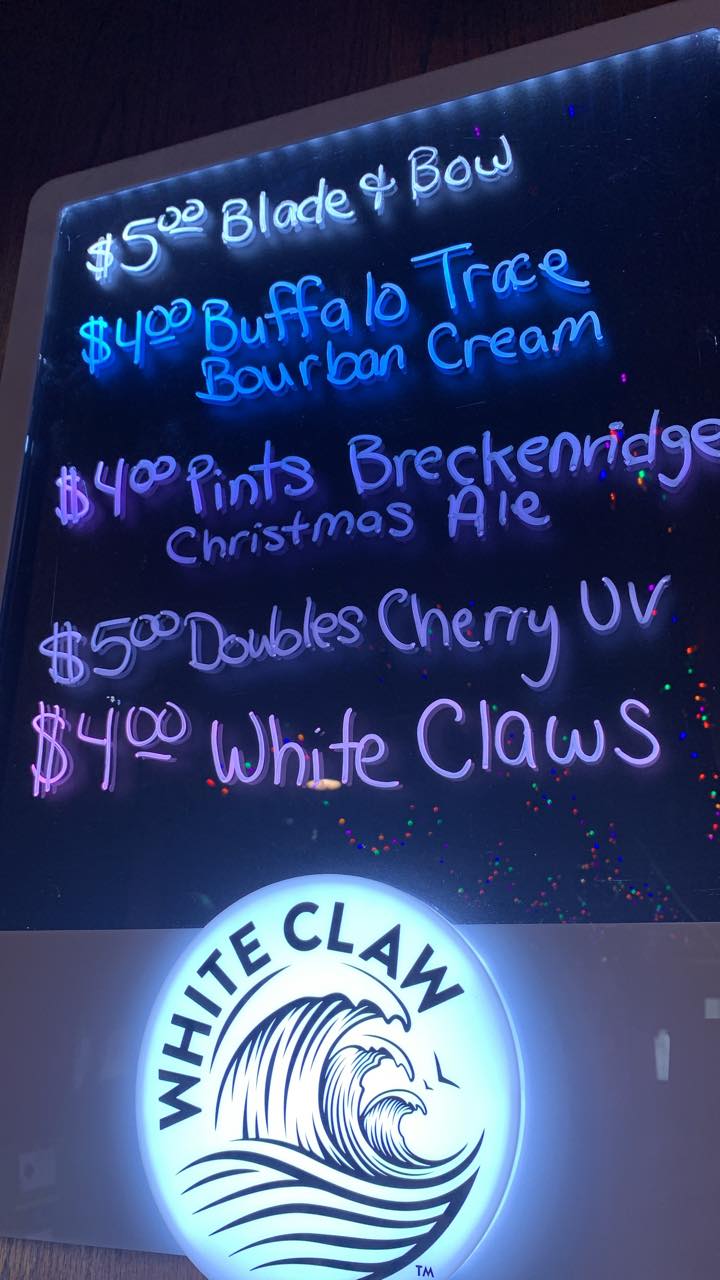 $5.00 Blade & Bow
$4.00 Buffalo Trace
Bourban Cream
$4.00 Pints Breckenridge
Christmas Ale
$5.00 Doubles Cherry UV
$4.00 White Claws
WHITE CLAW
TM